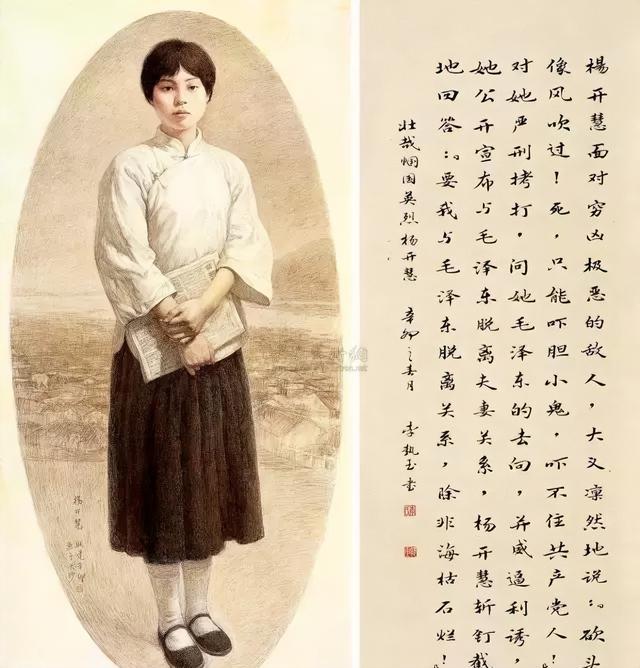 楊开慧面对穷凶极恶的敌人，大义凛然地说：砍头
像风吹过！死，只能吓胆小鬼，吓不住共产党人！
对她严刑拷打，问她毛泽东的去向，并威逼利诱
她公开宣布与毛泽东脱离夫妻关系，杨开慧斩钉截
地回答：要我与毛泽东脱离关系，除非海枯石烂！
壮哉 国英烈杨开慧 辛卯之春月 李执玉书
楊开慧